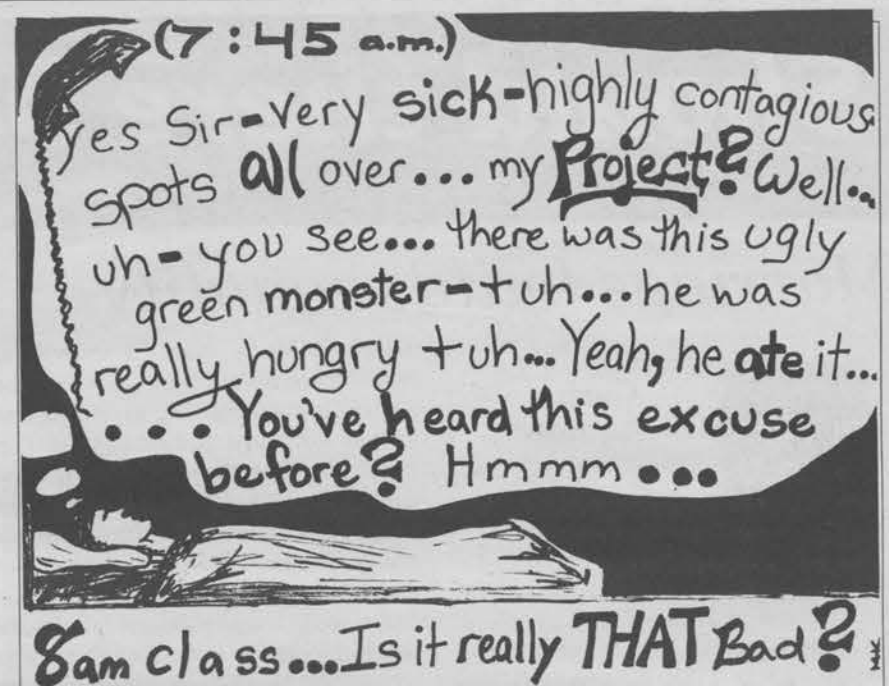 (7:45 a.m.)
yes Sir-Very sick-highly contagious
spots all over... my Project? Well...
uh-you see... there was this ugly
green monster-+uh... he was
really hungry +uh... Yeah, he ate it...
... You've heard this excuse
before? Hmmm...
8am class... Is it really THAT Bad?